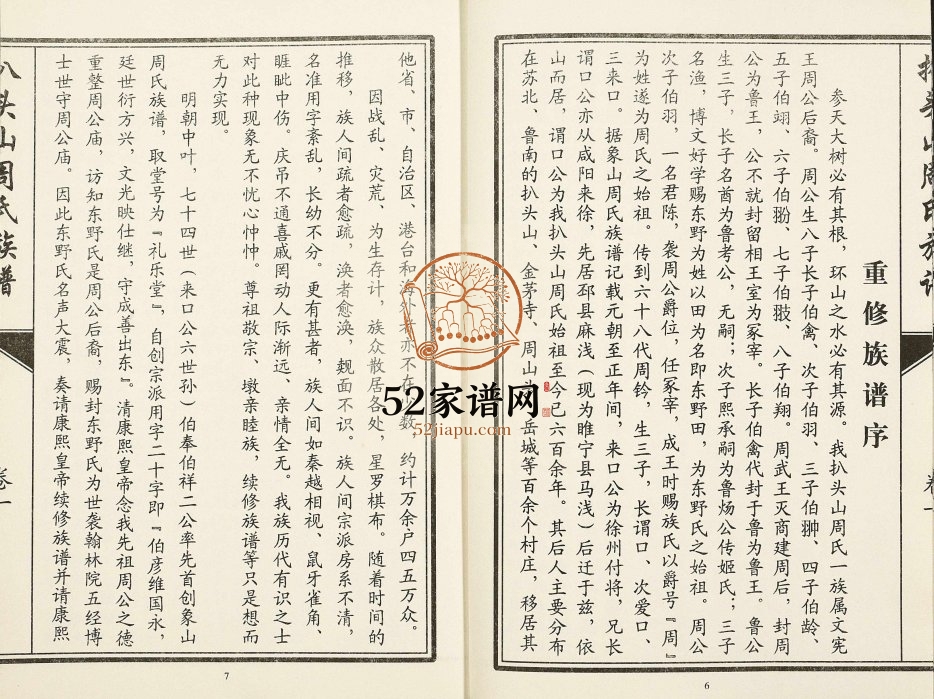 重修族谱序
参天大树必有其根，环山之水必有其源。我扒头山周氏一族属文宪
王周公后裔。周公生八子长子伯禽、次子伯羽、三子伯翀、四子伯龄、
五子伯翊、六子伯翂、七子伯翄、八子伯翔。周武王灭商建周后，封周
公为鲁王，公不就封留相王室为冢宰。长子伯禽代封于鲁为鲁王。鲁公
生三子，长子名酋为鲁考公，无嗣；次子熙承嗣为鲁炀公传姬氏；三子
名渔，博文好学赐东野为姓以田为名即东野田，为东野氏之始祖。周公
次子伯羽，一名君陈，袭周公爵位，任冢宰，成王时赐族氏以爵号『周』
为姓遂为周氏之始祖。传到六十八代周钤，生三子，长谓口、次爱口、
三来口。据象山周氏族谱记载元朝至正年间，来口公为徐州付将，兄长
谓口公亦从咸阳来徐，先居邳县麻浅（现为睢宁县马浅）后迁于兹，依
山而居，谓口公为我扒头山周氏始祖至今已六百余年。其后人主要分布
在苏北、鲁南的扒头山、金茅寺、周山头、岳城等百余个村庄，移居其
6
卷一
他省、市、自治区、港台和海外者亦不在少数，约计万余户四五万众。
因战乱、灾荒、为生存计，族众散居各处，星罗棋布。随着时间的
推移，族人间疏者愈疏，涣者愈涣，觌面不识。族人间宗派房系不清，
名准用字紊乱，长幼不分。更有甚者，族人间如秦越相视、鼠牙雀角、
睚眦中伤。庆吊不通喜戚罔动人际渐远、亲情全无。我族历代有识之士
对此种现象无不忧心忡忡。尊祖敬宗、墩亲睦族，续修族谱等只是想而
无力实现。
明朝中叶，七十四世（来口公六世孙）伯奉伯祥二公率先首创象山
周氏族谱，取堂号为『礼乐堂』，自创宗派用字二十字即『伯彦维国永，
廷世衍方兴，文光映仕继，守成善出东』。清康熙皇帝念我先祖周公之德
重整周公庙，访知东野氏是周公后裔，赐封东野氏为世袭翰林院五经博
士世守周公庙。因此东野氏名声大震，奏请康熙皇帝续修族谱并请康熙
扒头山周氏族谱
卷一
7
52家谱网
52jiapu.com